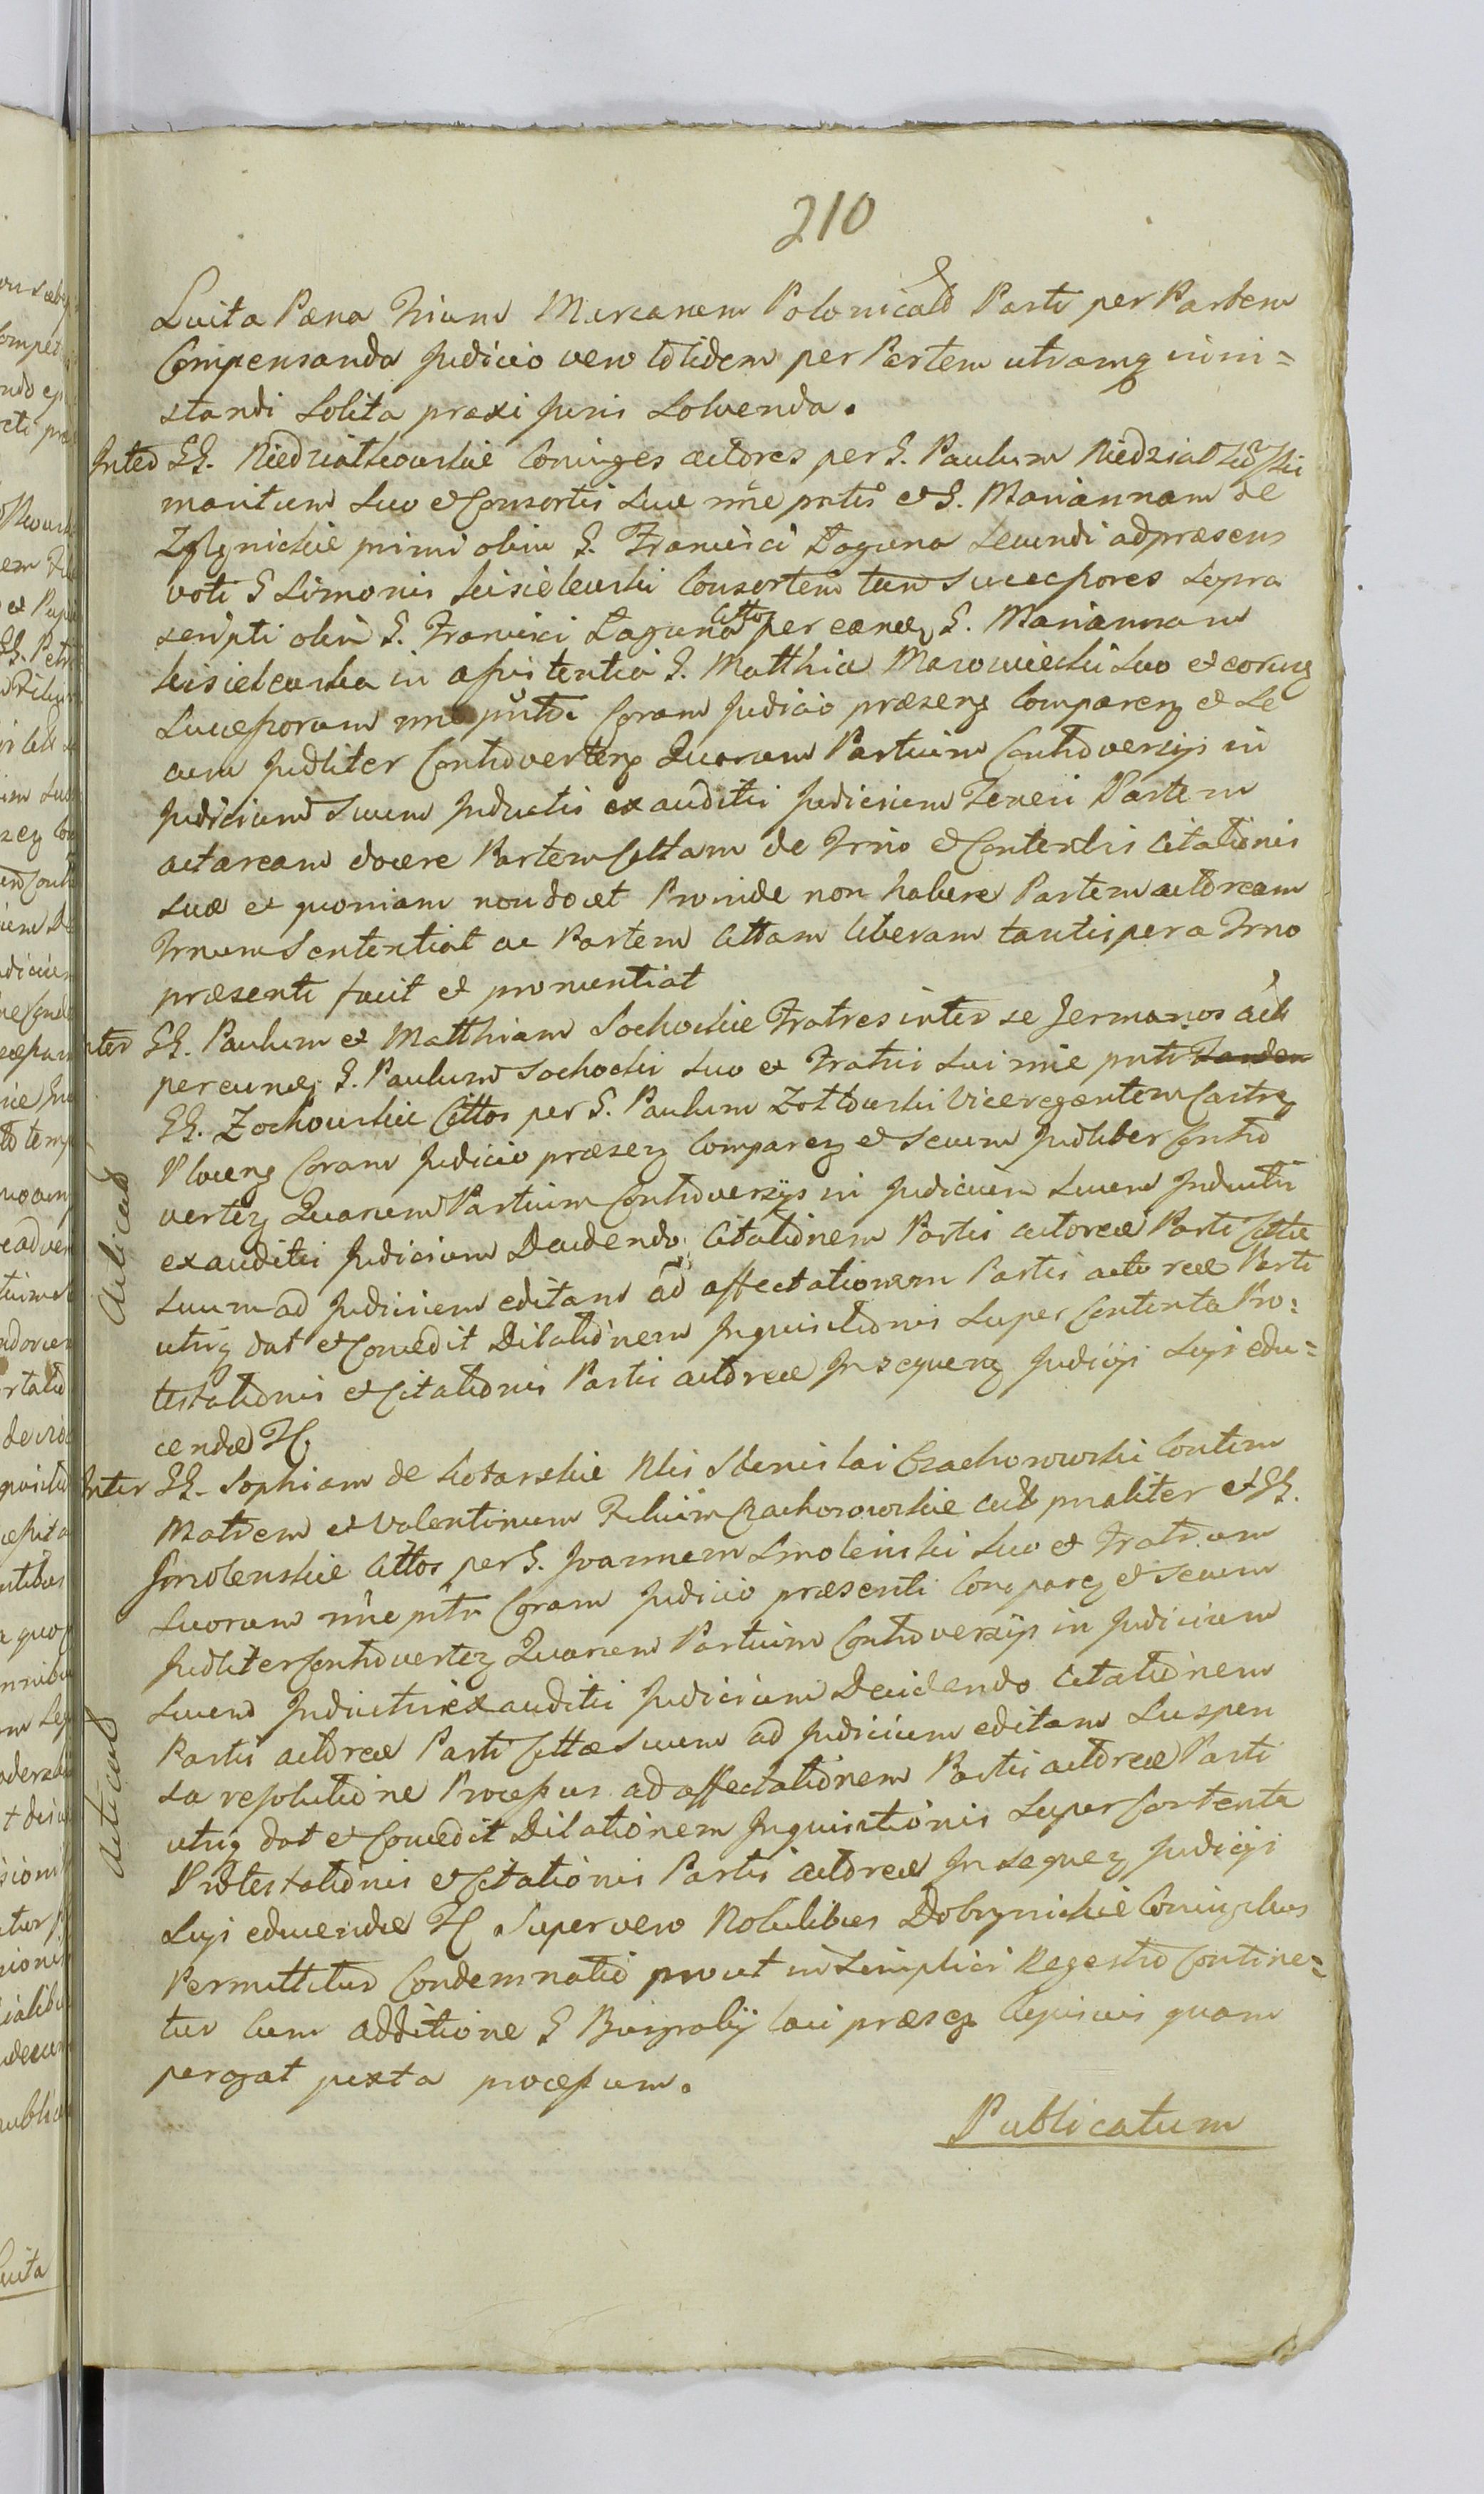 210
Luita Pæna Trium Marcarum Polonicald Parti per Partem
Compensanda Judicio vero totidem per Partem utramq inni=
standi Solita praxi Juris Solvenda.
Inter GG. Niedziałkowskie Coniuges actores per G. Paulum Niedziałkowski
maritum Suo et Consortis Suæ nne pntis et G. Mariannam de
primi olim G. Francisci Łaguna Secundi ad præsens
voti G Simonis Kisielewski Consortem tum Successores Supra
scripti olim G. Francisci Łaguna Cittos per eandq G. Mariannam
Kisielewska in assistentia G. Matthiæ Marowieski Suo et eorunq
Successorum nne pntti Coram Judicio præsenz Comparenz et Se
cum Judliter Controvertenz Quarum Partium Controversijs in
Judicium Suum Inductis exauditis Judicium Teneri Partem
actoream docere Partem Cittam de Trno et Contentis Citationis
Suæ et quoniam non docet Proinde non habere Partem actoream
Trnum Sententiat ac Partem Cittam liberam tantisper a Trno
præsenti facit et pronuntiat
Inter GG. Paulum et Matthiam Sochockie Fratres inter se Germanos act
per eunq G. Paulum Sochocki Suo et Fratris Sui nne pnti
GG. Zochowskie Cittos per G. Paulum Zółtowski Viceregentem Castrz
Plocenz Coram Judicio præsenz Comparez et Secum Judliter Contro
vertez Quarum Partium Controversijs in Judicium Suum Inductis
exauditis Judicium Decidendo Citationem Partis actoreæ Parti Cittæ
Suum ad Judicium editam ad affectationem Partis actoreæ Parti
utriq dat et Concedit Dilationem Inquisitionis Super Contenta Pro=
testationis et Citationis Partis actoreæ In sequenz Judicijs Sijs edu=
cendæ H
Inter GG. Sophiam de Kotarskie Nlis Stanislai Czachorowski Contem
Matrem et Valentinum Filium Czachorowskie act pnaliter et GG.
Smolenskie Cittos per G. Joannem Smolenski Suo et Fratrum
Suorum nne pntu Coram Judicio præsenti Comparez et Secum
Judliter Controvertez Quarum Partium Controversijs in Judicium
Suum Inductis exauditis Judicium Decidendo Citationem
Partis actoreæ Parti Cittæ Suum ad Judicium editam Suspen
sa resolutione Processus ad affectationem Partis actoreæ Parti
utriq dat et Concedit Dilationem Inquisitionis Super Contenta
Protestationis et Citationis Partis actoreæ In sequez Judicijs
Sijs educendæ H Super vero Nobilibus Dobrznickie Coniugibus
Permittitur Condemnatio prout in Simplici Regestro Contine=
tur Cum additione G Burgrabij Loci præsez quam
pergat juxta processum.
Publicatum